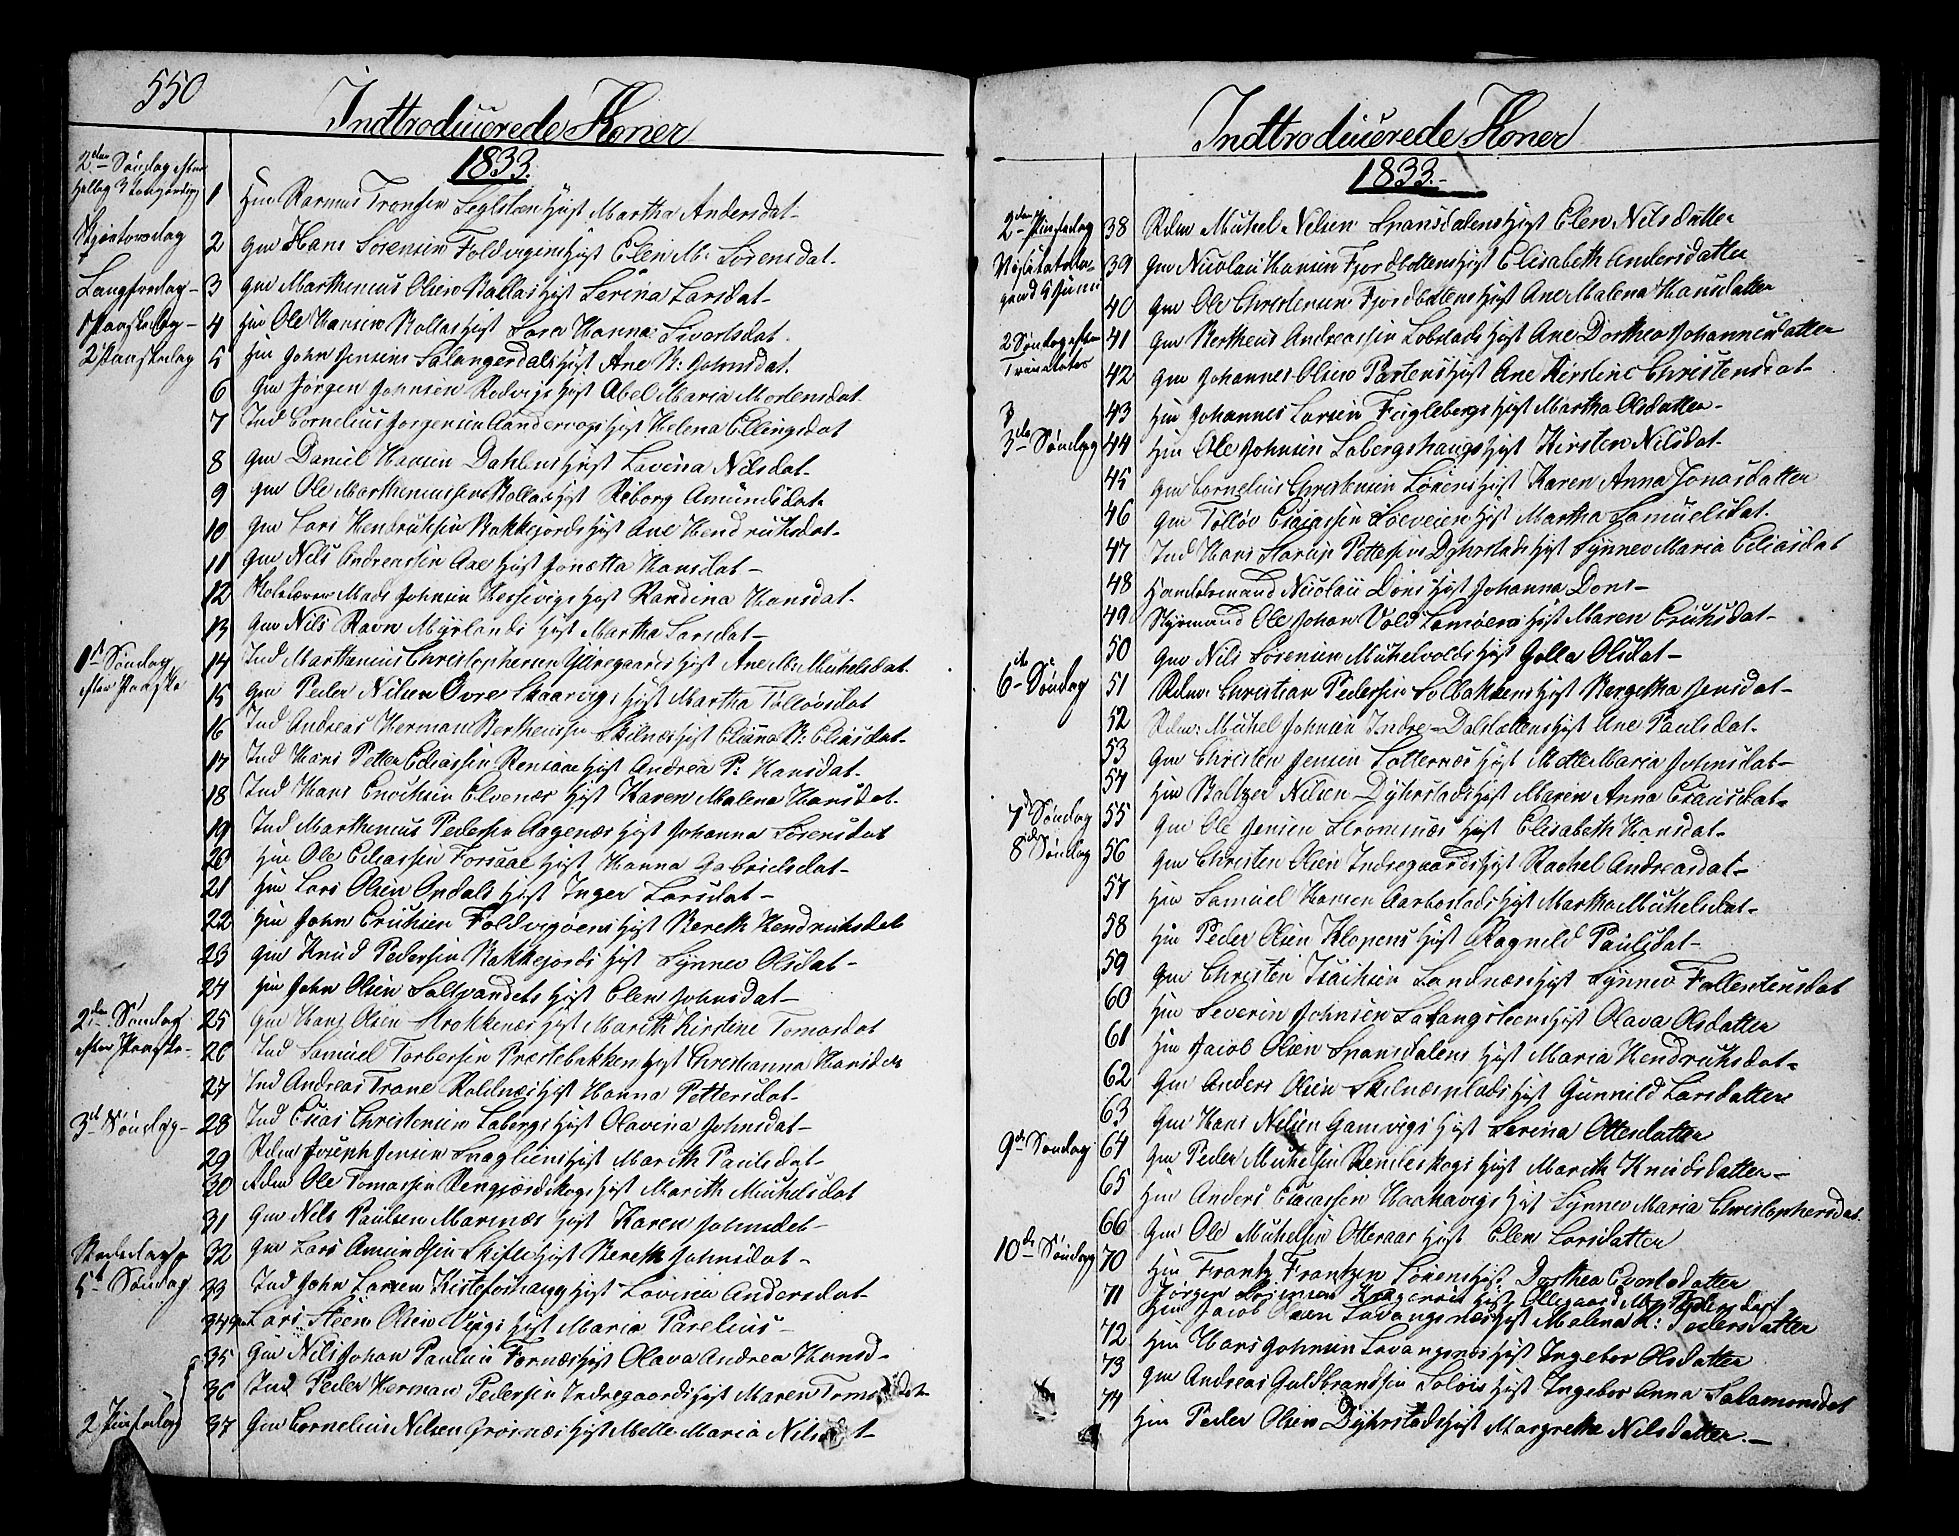 550
Indtroducerede Koner
1833.
2den Søndag efter
Hellig 3 Kongersdag
1 Hm Rasmus Transen Høgst Martha Andersdat-
Skjertorsdag 2 Gm Hans Sørensen Foldvigens Høgst Elen M: Sørensdat.
Langfredag- 3 Gm Marthinus Olsen Rollas Høgst Serina Larsdat-
1 Paaskedag- 4 Hm Ole Hansen Rollas Høgst Sara Hanna Sivertsdat.
2 Paaskedag 5 Hm John Jensens Salangerdals Høgst Ane M: Johnsdat.
6 Gm Jørgen Johnsen Høgst Abel Maria Mortensdat.
7 Ind Cornelius Jørgensen Høgst Helena Ellingsdat
8 Gm Daniel Hansen Dahlens Høgst Lavina Nilsdat-
9 Gm Ole Marthinussens Rollas Høgst Røborg Amundsdat-
10 Gm Lars Hendrichsen Bakkejords Høgst Ane Hendrichsdat-
11 Gm Nils Andreassen Aae Høgst Jonetta Hansdat-
12 Skolelærer Mads Johnsen Hessevigs Høgst Randina Hansdat-
13 Gm Nils Ravn Myrlands Høgst Martha Larsdat-
1st Søndag 14 Ind Marthinius Christophersen Høgst Ane M: Michelsdat.
efter Paaske 15 Gm Peder Nilsen Øvre Skaarvigs Høgst Martha Tolløvsdat
16 Ind Andreas Herman Bertheussen Skilnes Høgst N: Eliasdat-
17 Ind Hans Petter Eliassen Høgst Andrea P: Hansdat-
18 Ind Hans Enochsen Elvenæs Høgst Karen Malena Hansdat.
19 Ind Marthinus Pedersen Aagenæs Høgst Johanna Sørensdat
20 Hm Ole Eliassen Forsaae Høgst Hanna Gabrielsdat-
21 Hm Lars Olsen Høgst Inger Larsdat-
22 Hm John Erichsen Foldvigøens Høgst Bereth Hendrichsdat
23 Gm Knud Pedersen Bakkejords Høgst Synnev Olsdat-
24 Hm John Olsen Saltvandets Høgst Elen Johnsdat-
2den Søndag 25 Gm Hans Olsen Strokkenæs Høgst Marith Kirstine Tomasdat
efter Paaske- 26 Ind Samuel Torbersen Præstebakken Høgst Christianna Hansdat
27 Ind Andreas Trane Roldnæs Høgst Hanna Pettersdat-
3d Søndag- 28 Ind Esias Christensen Labergs Høgst Olavina Johnsdat-
29 Rdm Joseph Jensen Høgst Marith Paulsdat-
30 Rdm Ole Tomassen Høgst Marith Michelsdat
31 Gm Nils Paulsen Marinæs Høgst Karen Johnsdat-
32 Gm Lars Amundsen Høgst Bereth Johnsdat-
5d Søndag 33 Ind John Larsen Høgst Lavina Andersdat
34 Gm Lars Steen Olsen Høgst Maria Parelius-
35 Gm Nils Johan Paulsen Fornæs Høgst Olava Andrea Hansd-
36 Ind Peder Herman Pedersen Indregaards Høgst Maren
2 Pintsedag 37 Gm Cornelius Nilsen Grøsnæs Høgst Mette Maria Nilsdat-
Indtroducerede Koner
1833.-
2den Pintsedag 38 Rdm Michel Nilsen Spansdalens Høgst Elen Nilsdatter
39 Gm Nicolai Hansen Fjordbottens Høgst Elisabeth Andersdatter
40 Gm Ole Christensen Fjordbottens Høgst Ane Malena Hansdatter
2 Søndag efter 41 Gm Bertheus Andreassen Høgst Ane Dorthea Johannesdatter
Trinitatis 42 Gm Johannes Olsen Høgst Ane Kirstine Christensdat-
3
43 Hm Johannes Larsen Fuglebergs Høgst Martha Olsdatter-
3die Søndag 44 Hm Ole Johnsen Labergshaugs Høgst Kirsten Nilsdat-
45 Gm Cornelius Christensen Sørens Høgst Karen Anna Jonasdatter
46 Gm Tolløv Esaiassen Høgst Martha Samuelsdat.
47 Ind Hans Pettersen Dyhrstads Høgst Synnev Maria Eliasdat
48 Handelsmand Nicolai Dons Høgst Johanna Dons-
49 Styrmand Ole Johan Vold Høgst Maren Erichsdat-
50 Gm Nils Sørensen Michelvolds Høgst Golla Olsdat-
6te Søndag 51 Rdm: Christian Pedersen Solbakkens Høgst Bergetha Jensdat-
52 Rdm: Michel Johnsen Indre- Høgst Ane Paulsdat-
53 Gm Christen Jensen Høgst Mette Maria Johnsdat-
54 Hm Baltzer Nilsen Dyhrstads Høgst Maren Anna Esaiasdat-
7d Søndag 55 Gm Ole Jensen Strømnæs Høgst Elisabeth Hansdat-
8de Søndag 56 Gm Christen Olsen Indregaards Høgst Rachel Andreasdat-
57 Hm Samuel Hansen Aarbostads Høgst Martha Michelsdat-
58 Hm Peder Olsen Klopens Høgst Ragnild Paulsdat-
59 Gm Christen Isachsen Landnæs Høgst Synnev Fallentinsdat
60 Hm Severin Johnsen Salangsleens Høgst Olava Olsdatter
61 Hm Jacob Olsen Spansdalens Høgst Maria Hendrichsdat-
62 Gm Anders Olsen Skilnæsplads Høgst Gunnild Larsdatter
63 Gm Hans Nilsen Gamvigs Høgst Serina Ottesdatter
9d Søndag 64 Gm Peder Michelsen Høgst Marith Knudsdatter-
65 Hm Anders Esaiassen Haakavigs Høgst Synnev Maria Christophersdat.
66 Gm Ole Michelsen Otteraas Høgst Elen Larsdatter
10de Søndag 70 Hm Frantz Frantzen Sørens Høgst Dorthea Evertsdatter
71 Jørgen Sørensen Høgst Ollegaard M: Pedersdatt
Hm Jacob Olsen Lavangsnæs Høgst Malena K: Pedersdatter
72 Hm Hans Johnsen Lavangsnæs Høgst Ingebor Olsdatter
73 Gm Andreas Guldbrandsen Høgst Ingebor Anna Salamonsdat
74 Hm Peder Olsen Dyhrstads Høgst Margretha Nilsdatter.-